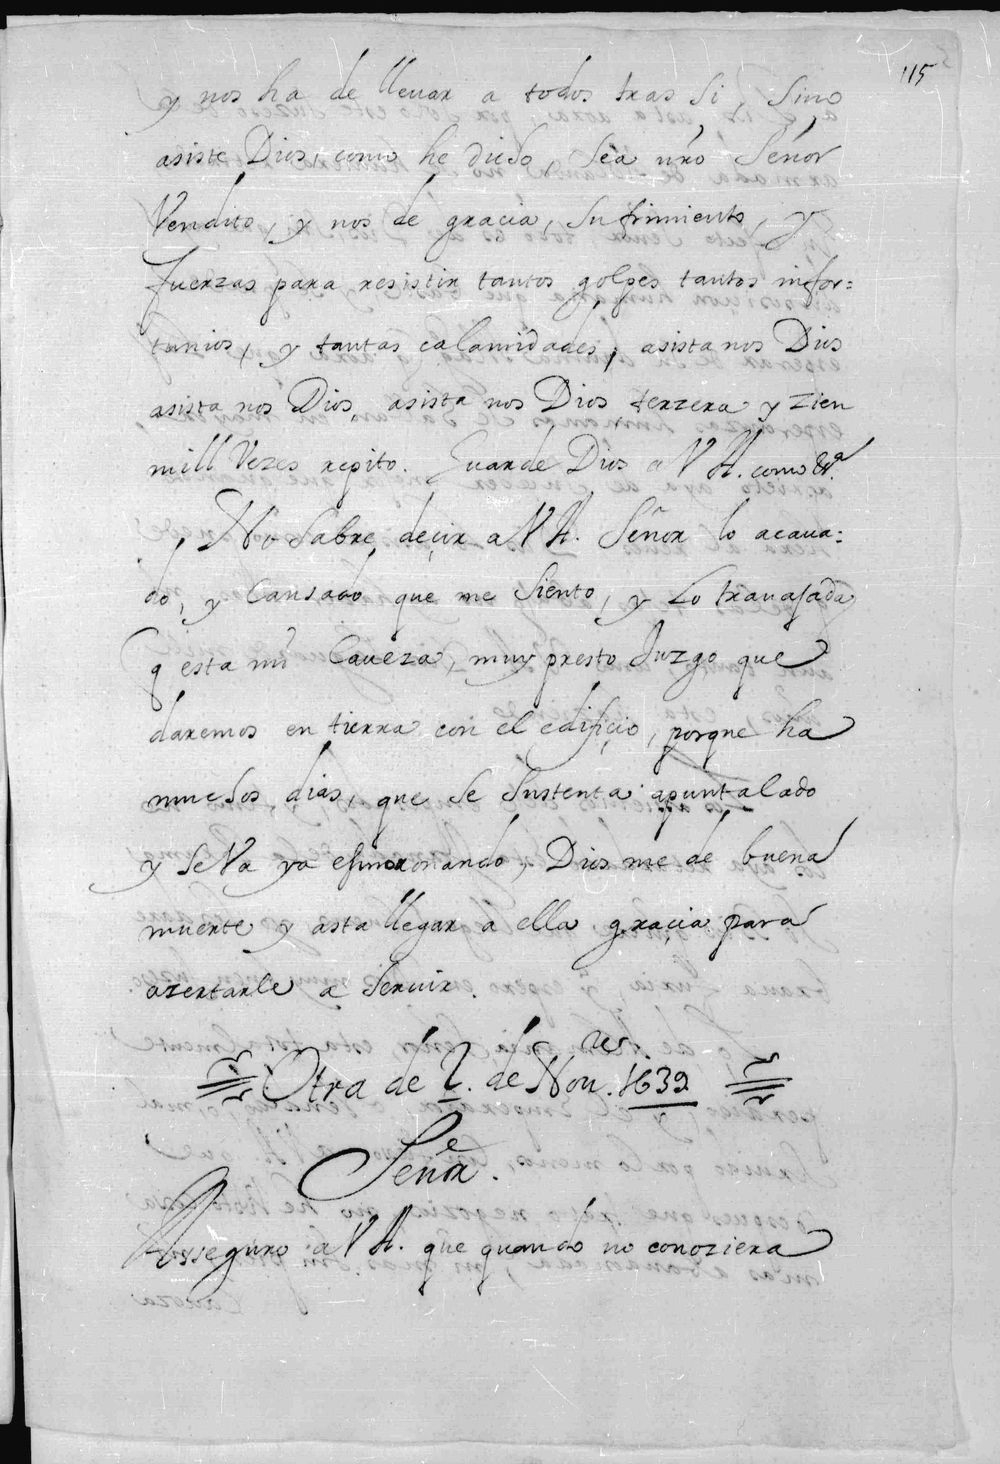 115
y nos ha de lleuar a todos tras si, Sino
asiste Dios, como he dicho, Sea nr̃o Señor
Vendito, y nos de gracia, sufrimiento, y
fuerzas para resistir tantos golpes tantos infor=
tunios, y tantas calamidades, asista nos Dios
asista nos Dios, asista nos Dios, terzera y zien
mill Vezes repito. Guarde Dios a V A. como &ª.
No Sabre, deçir a V A. Señor lo acaua=
do, y Cansado que me Siento, y Lo trauajada
q esta mi Caueza, muy presto Juzgo que
daremos en tierra con el edifiçio, porque ha
muchos dias, que se Sustenta apuntalado
y Se Va ya desmoronando, Dios me de buena
muerte y asta llegar a ella graçia para
azertarle a Seruir.
Otra de 2. de Nou.res 1639
Señor.
Asseguro a V A. que quando no conoziera